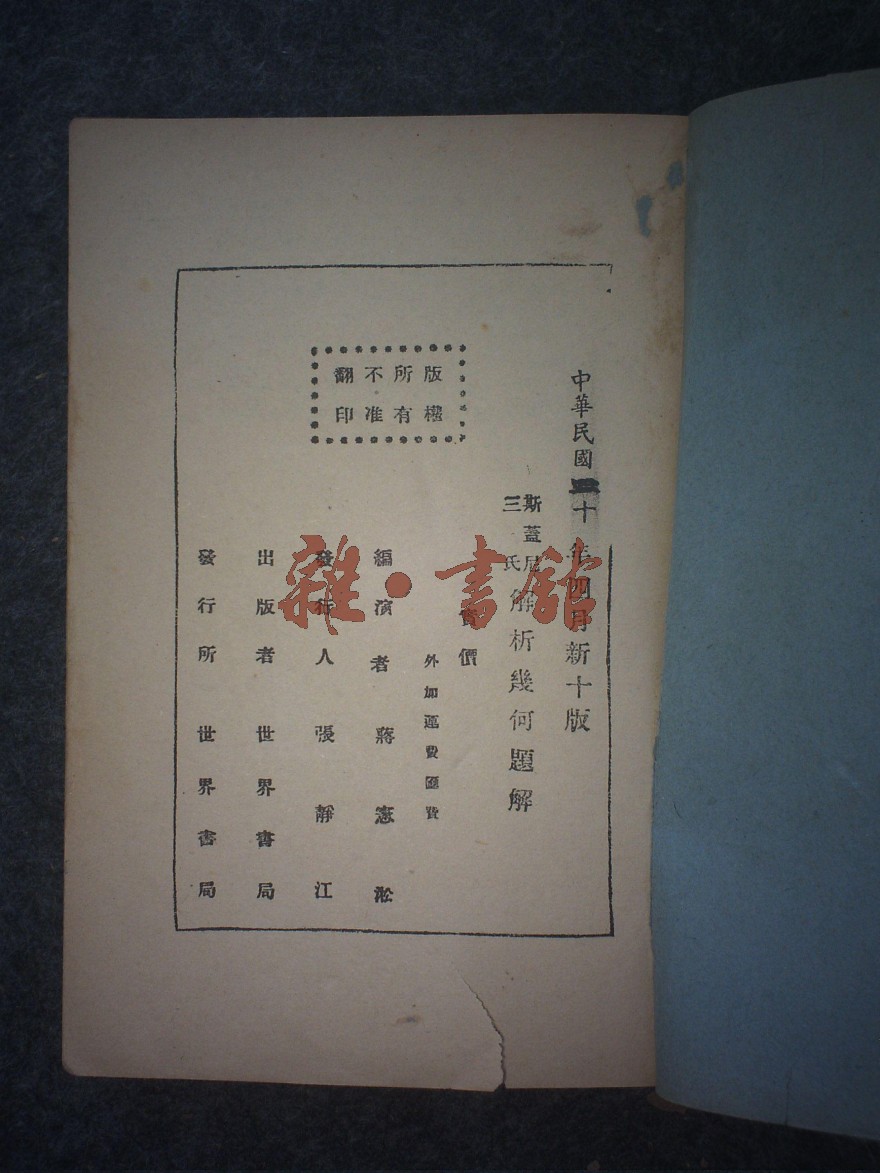 中華民國十年四月新十版
斯蓋尼
三氏
解析幾何題解
價
外加運費匯費
編演者 蔣憲淞
發行人 張靜江
出版者 世界書局
發行所 世界書局
版權
所有
不准
翻印
雜·書館